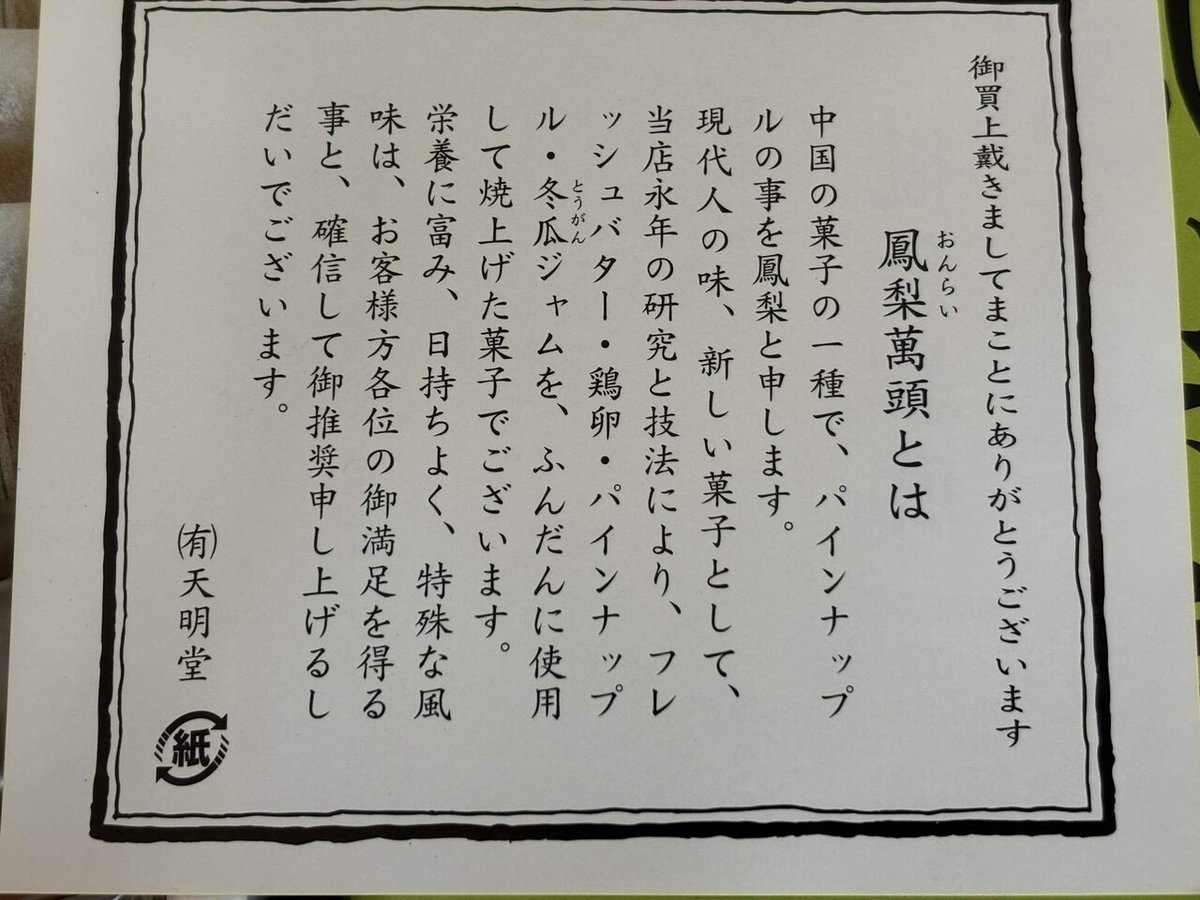 御買上戴きましてまことにありがとうございます
おんらい
鳳梨萬頭とは
中国の菓子の一種で、パインナップ
ルの事を鳳梨と申します。
現代人の味、新しい菓子として、
当店永年の研究と技法により、フレ
ッシュバター・鶏卵・パインナップ
とうがん
ル・冬瓜ジャムを、ふんだんに使用
して焼上げた菓子でございます。
栄養に富み、日持ちよく、特殊な風
味は、お客様方各位の御満足を得る
事と、確信して御推奨申し上げるし
だいでございます。
㈲天明堂
紙